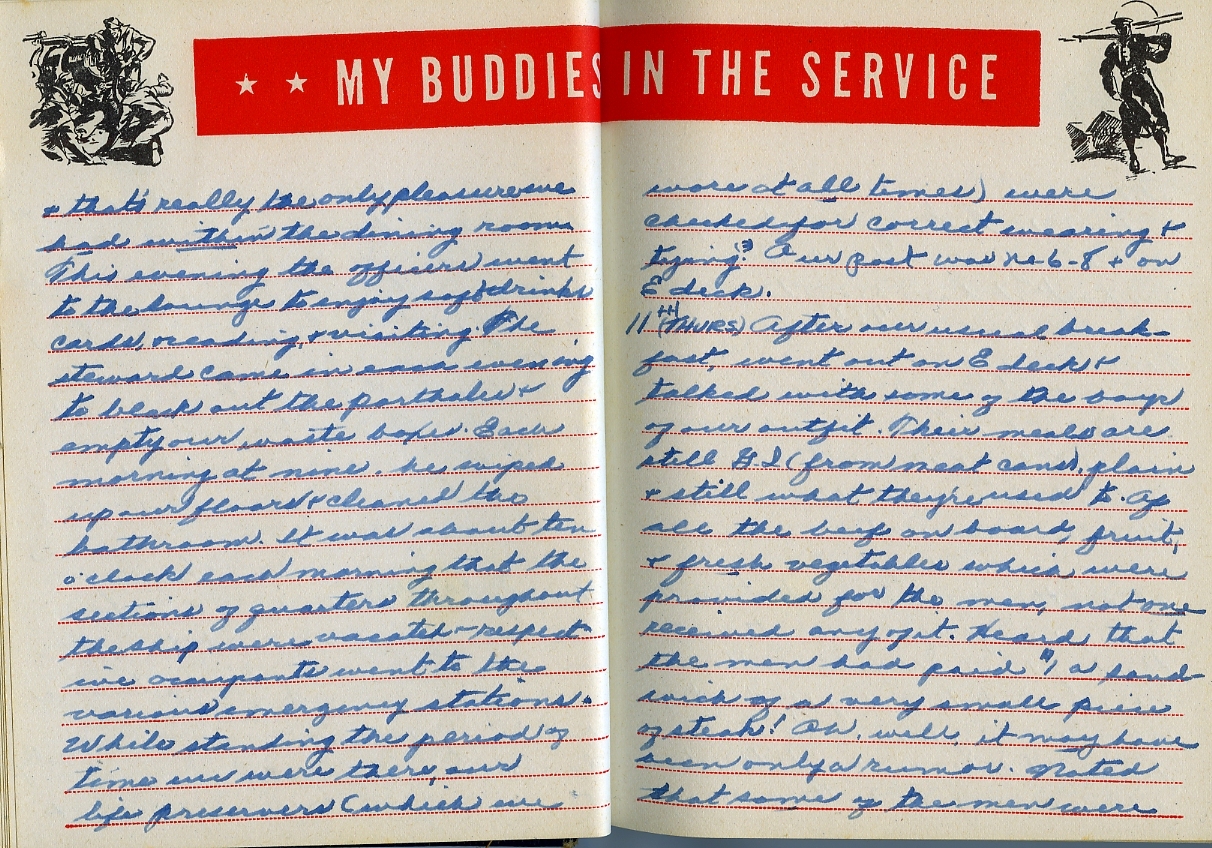 ★ ★ MY BUDDIES IN THE SERVICE
+ that's really the only pleasure we
had within the dining room
This evening the officers went
to the lounge to enjoy soft drinks
cards, reading, + visiting. The
steward came in each evening
to black out the portholes +
empty our waste boxes. Each
morning at nine, he wiped
up our floors + cleaned the
bathroom. It was about ten
o'clock each morning that the
sections of quarters throughout
the ship were vacated - respect
ive occupants went to the
various emergency stations.
While standing the period of
time we were there, our
life preservers (which we
wore at all times) were
checked for correct wearing +
tying? Our post was 6-8 + on
E deck.
11TH (THURS) After our usual break-
fast, went out on E deck +
talked with some of the boys
of our outfit. Their meals are
still G.I (from meat cans), plain
+ still what they're used to. Of
all the beef on board, fruit,
+ fresh vegetables which were
provided for the men, not one
received any of it. Heard that
the men had paid $1 a sand-
wich of a very small piece
of steak! Oh, well, it may have
been only a rumor. Noted
that some of the men were